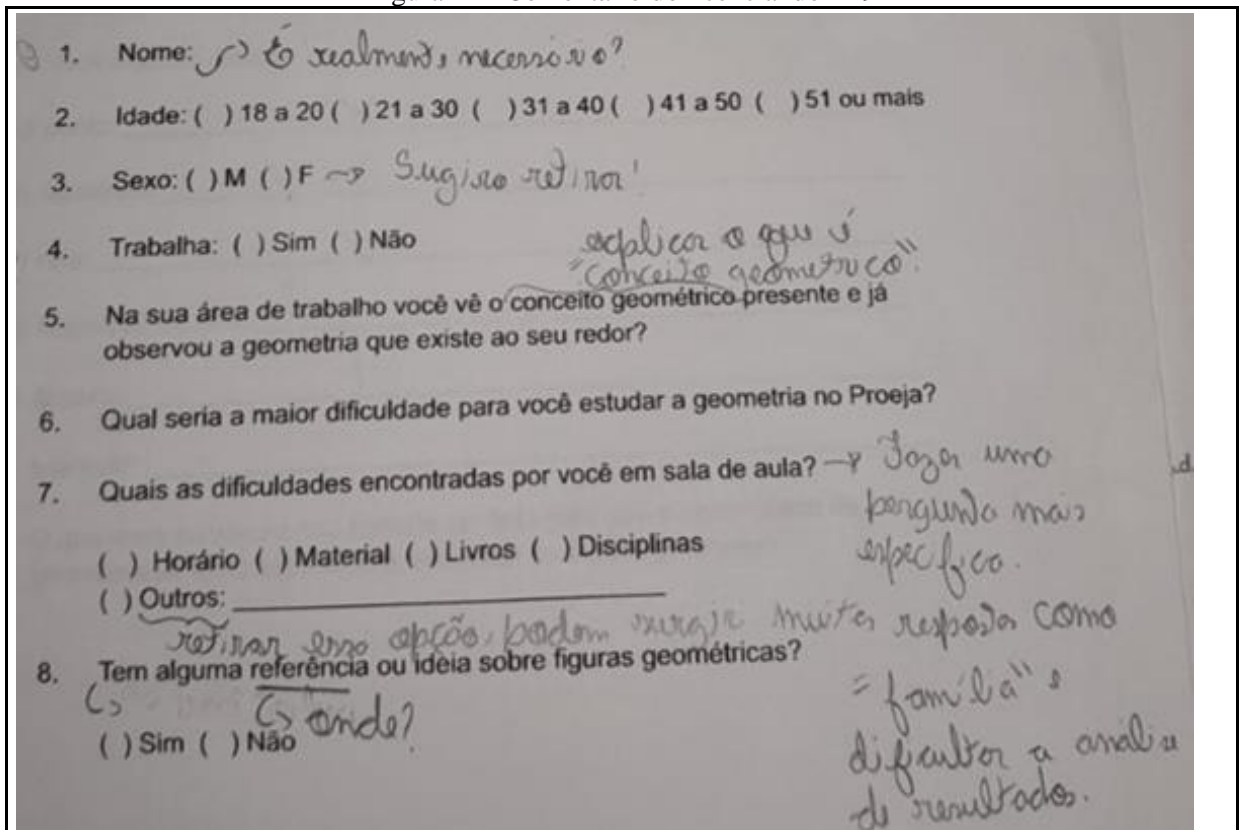 1. Nome: É realmente necessário?
2. Idade: ( ) 18 a 20 ( ) 21 a 30 ( ) 31 a 40 ( ) 41 a 50 ( ) 51 ou mais
3. Sexo: ( ) M ( ) F → Sugiro retirar!
4. Trabalha: ( ) Sim ( ) Não
explicar o que é
"conceito geométrico".
5. Na sua área de trabalho você vê o conceito geométrico presente e já
observou a geometria que existe ao seu redor?
6. Qual seria a maior dificuldade para você estudar a geometria no Proeja?
7. Quais as dificuldades encontradas por você em sala de aula? → Fazer uma
pergunta mais
específica.
( ) Horário ( ) Material ( ) Livros ( ) Disciplinas
( ) Outros:
retirar essa opção, podem surgir muitas resposta como
"família" e
dificultar a análise
de resultados.
8. Tem alguma referência ou ideia sobre figuras geométricas?
onde?
( ) Sim ( ) Não